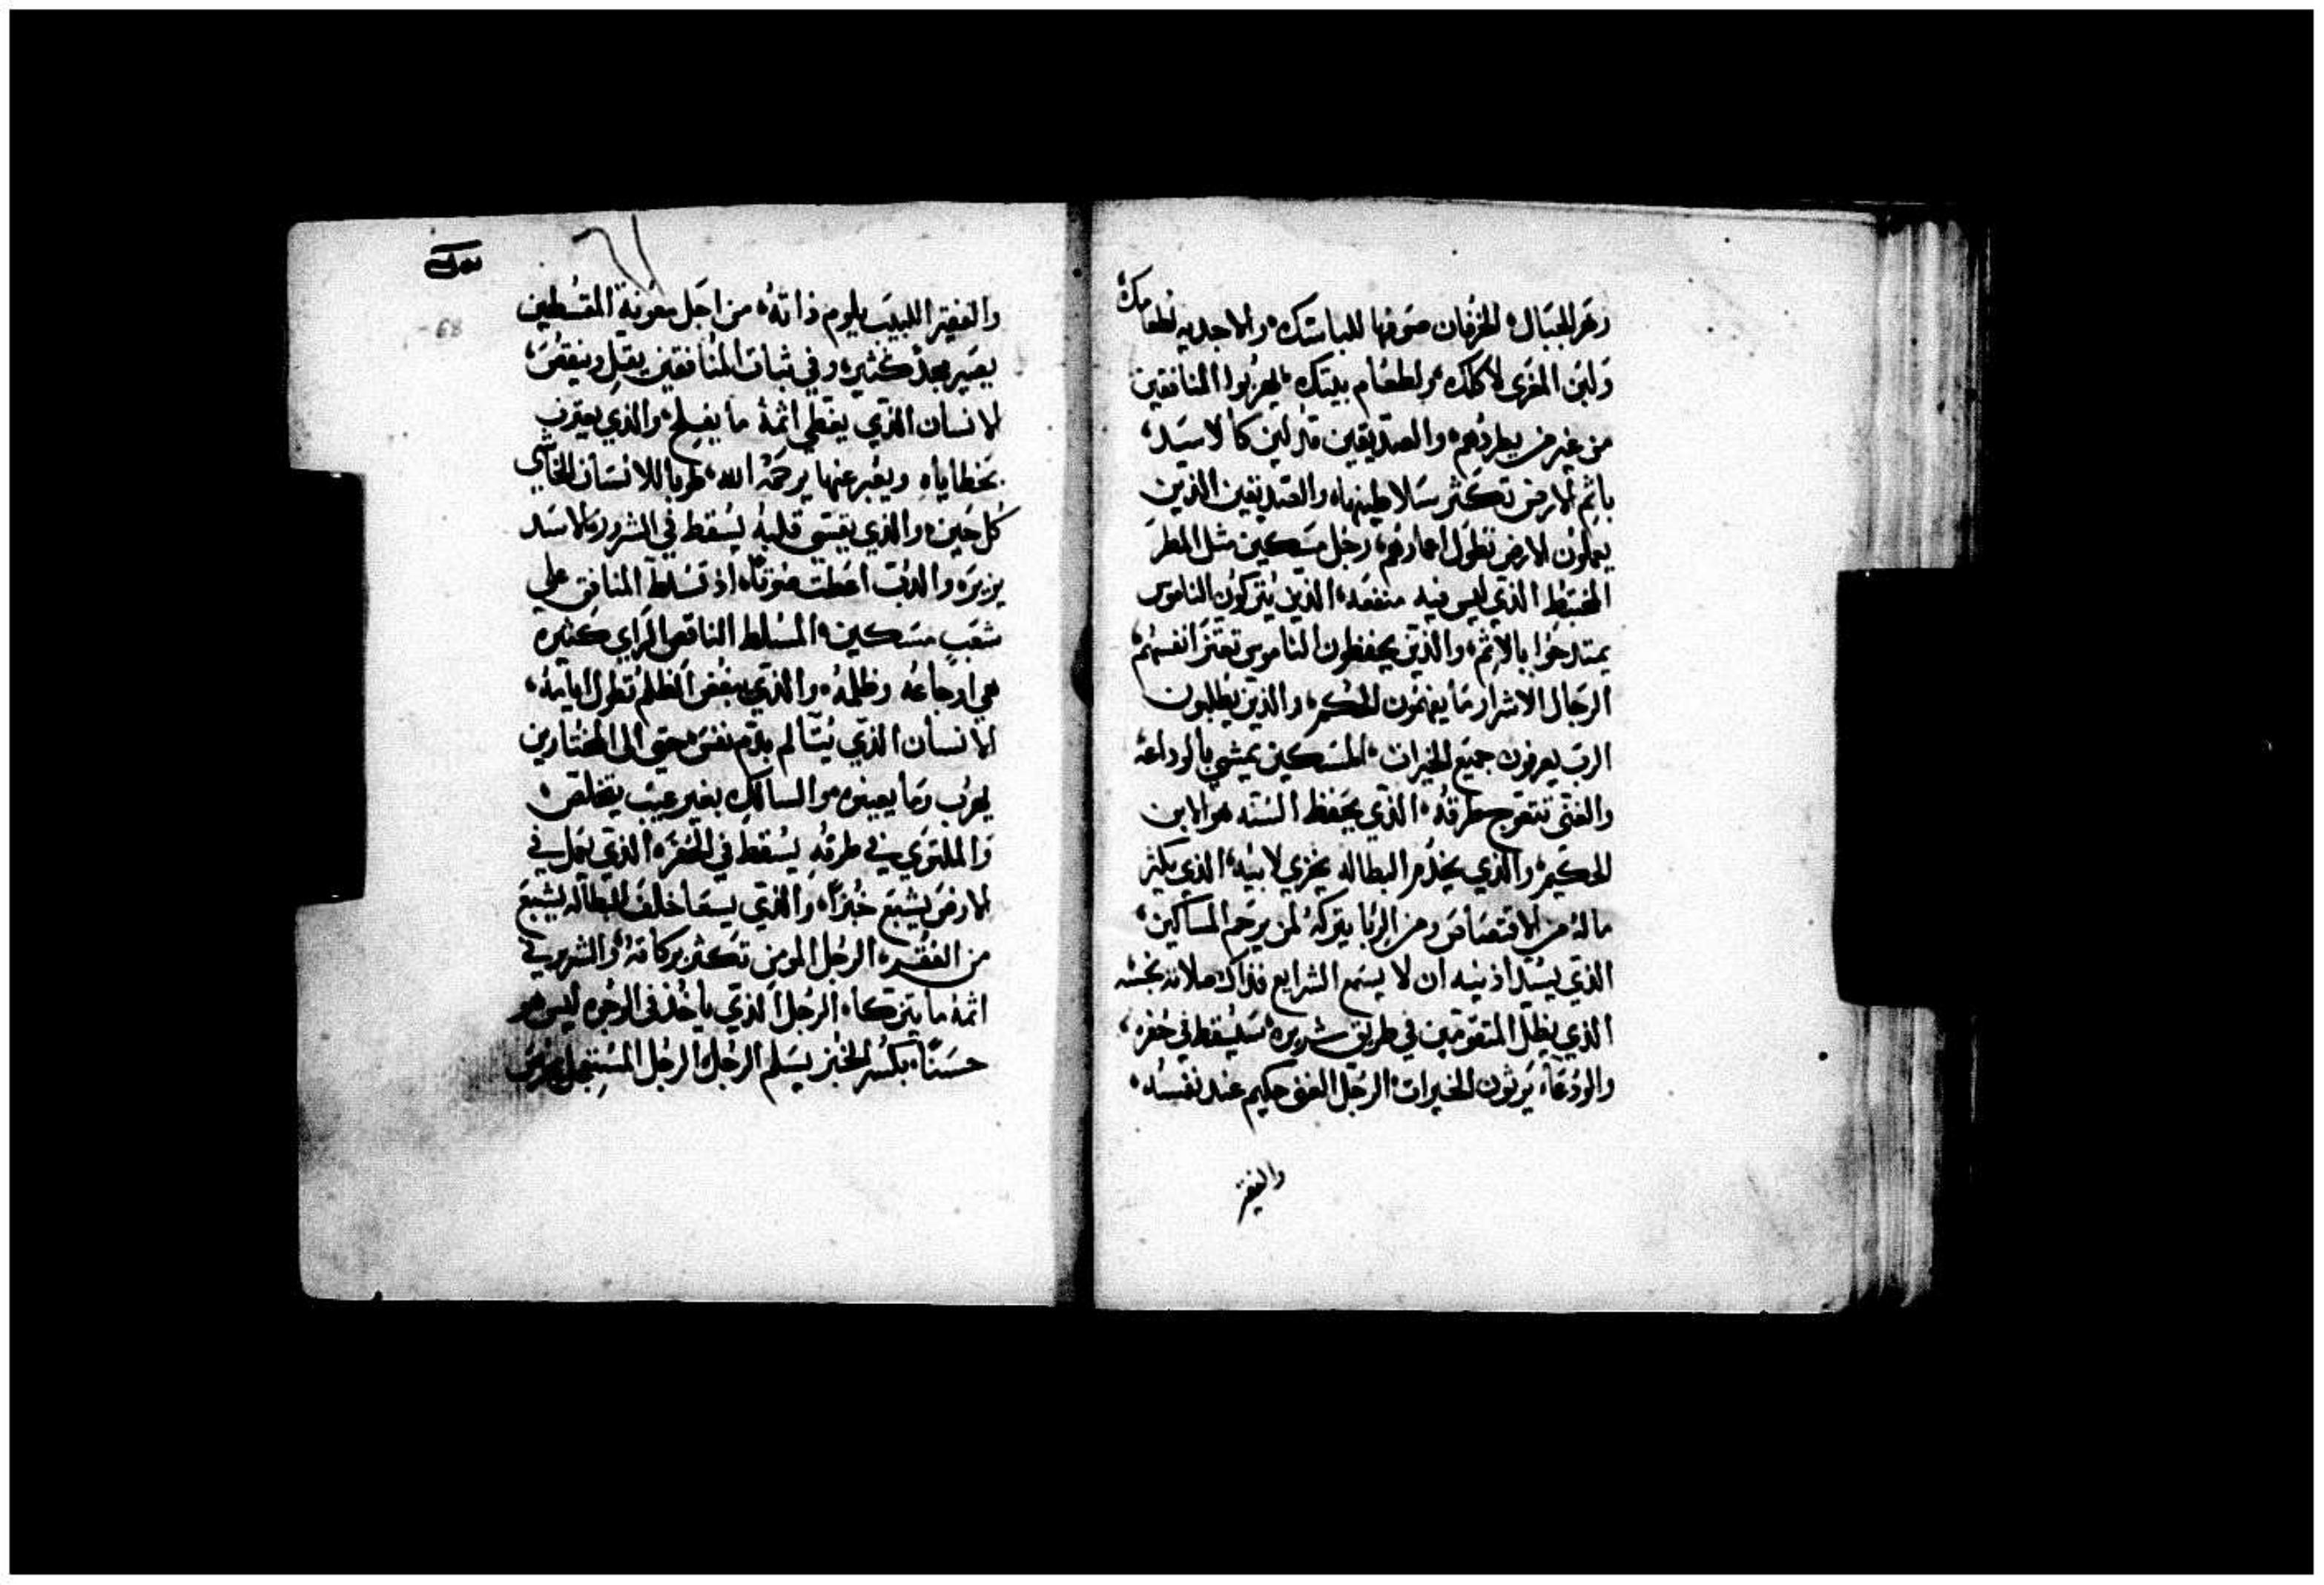 وعز الجبال، الخرفان صوفها للباسك، والاجديه لطعامك
ولبن المعزى لاكلك، ولطعام بيتك، يهربوا المنافقين
من غير من يطردهم، والصديقين مدلين كالاسد،
باثم الارض تكثر سلاطينها، والصديقين الذين
يعملون الارض تطول اعمارهم، رجل مسكين مثل المطر
المختبط الذي ليس فيه منفعه، الذين يتركون الناموس
يمتدحوا بالاثم، والذين يحفظون الناموس تعتز انفسهم
الرجال الاشرار ما يفهمون الحكم، والذين يطلبون
الرب يعرفون جميع الخيرات، المسكين يمشي بالوداعه
والغني تتعوج طرقه، الذي يحفظ السنه هو الابن
الحكيم، والذي يخدم البطاله يخزي لابيه، الذي يكثر
ماله من الاقتصاص ومن الربا يتركه لمن يرحم المساكين،
الذي يسد اذنيه ان لا يسمع الشرايع فذاك صلاته نجسه
الذي يظل المتقومين في طريق شريره، سيسقط في حفره،
والودعاء يرثون الخيرات، الرجل الغني حكيم عند نفسه،
والفقير
68
والفقير اللبيب يلوم ذاته، من اجل معونة المقسطين
يصير مجد كثير، وفي ثبات المنافقين يقتل وينقص،
الانسان الذي يغطي اثمه ما يفلح، والذي يعترف
بخطاياه ويعبر عنها يرحمه الله، طوبا للانسان الخاشي
كل حين، والذي يقسي قلبه يسقط في الشرور، الاسد
يزير، والدب اعطت صوتا، اذ تسلط المنافق علي
شعب مسكين، المسلط الناقص الراي كثيره
هي اوجاعه وظلمه، والذي يبغض الظلم تطول ايامه،
الانسان الذي يتالم بدم نفس، حتى الى المختارين
يهرب وما يعينوه، السالك بغير عيب يتخلص،
والملتوي في طرقه يسقط في الحفره، الذي يعمل في
الارض يشبع خبزا، والذي يسعا خلف البطاله يشبع
من الفقر، الرجل المومن تكثر بركاته، والشرير في
اثمه ما يتزكا، الرجل الذي ياخذ في الوجوه ليس هو
حسنا، بكسر الخبز يسلم الرجل، الرجل المستعجل